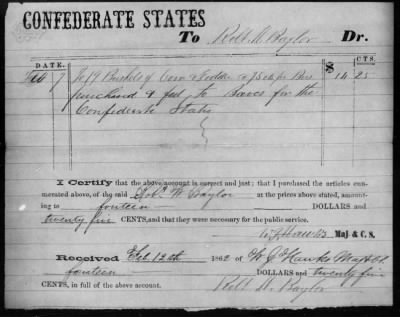 CONFEDERATE STATES
To Robt W Baylor Dr.
DATE. $ CTS.
Feb 7 To 19 Bushels of Corn @ 75 cts per Bus 14 25
purchased & fed to Beeves for the
Confederate States
I Certify that the above account is correct and just; that I purchased the articles enu-
merated above, of the said Robt W Baylor at the prices above stated, amount-
ing to fourteen DOLLARS and
twenty five CENTS, and that they were necessary for the public service.
W J Hawks Maj & C. S.
Received Feb 12th 1862 of W J Hawks Maj & CS
fourteen DOLLARS and twenty five
CENTS, in full of the above account.
Robt W. Baylor